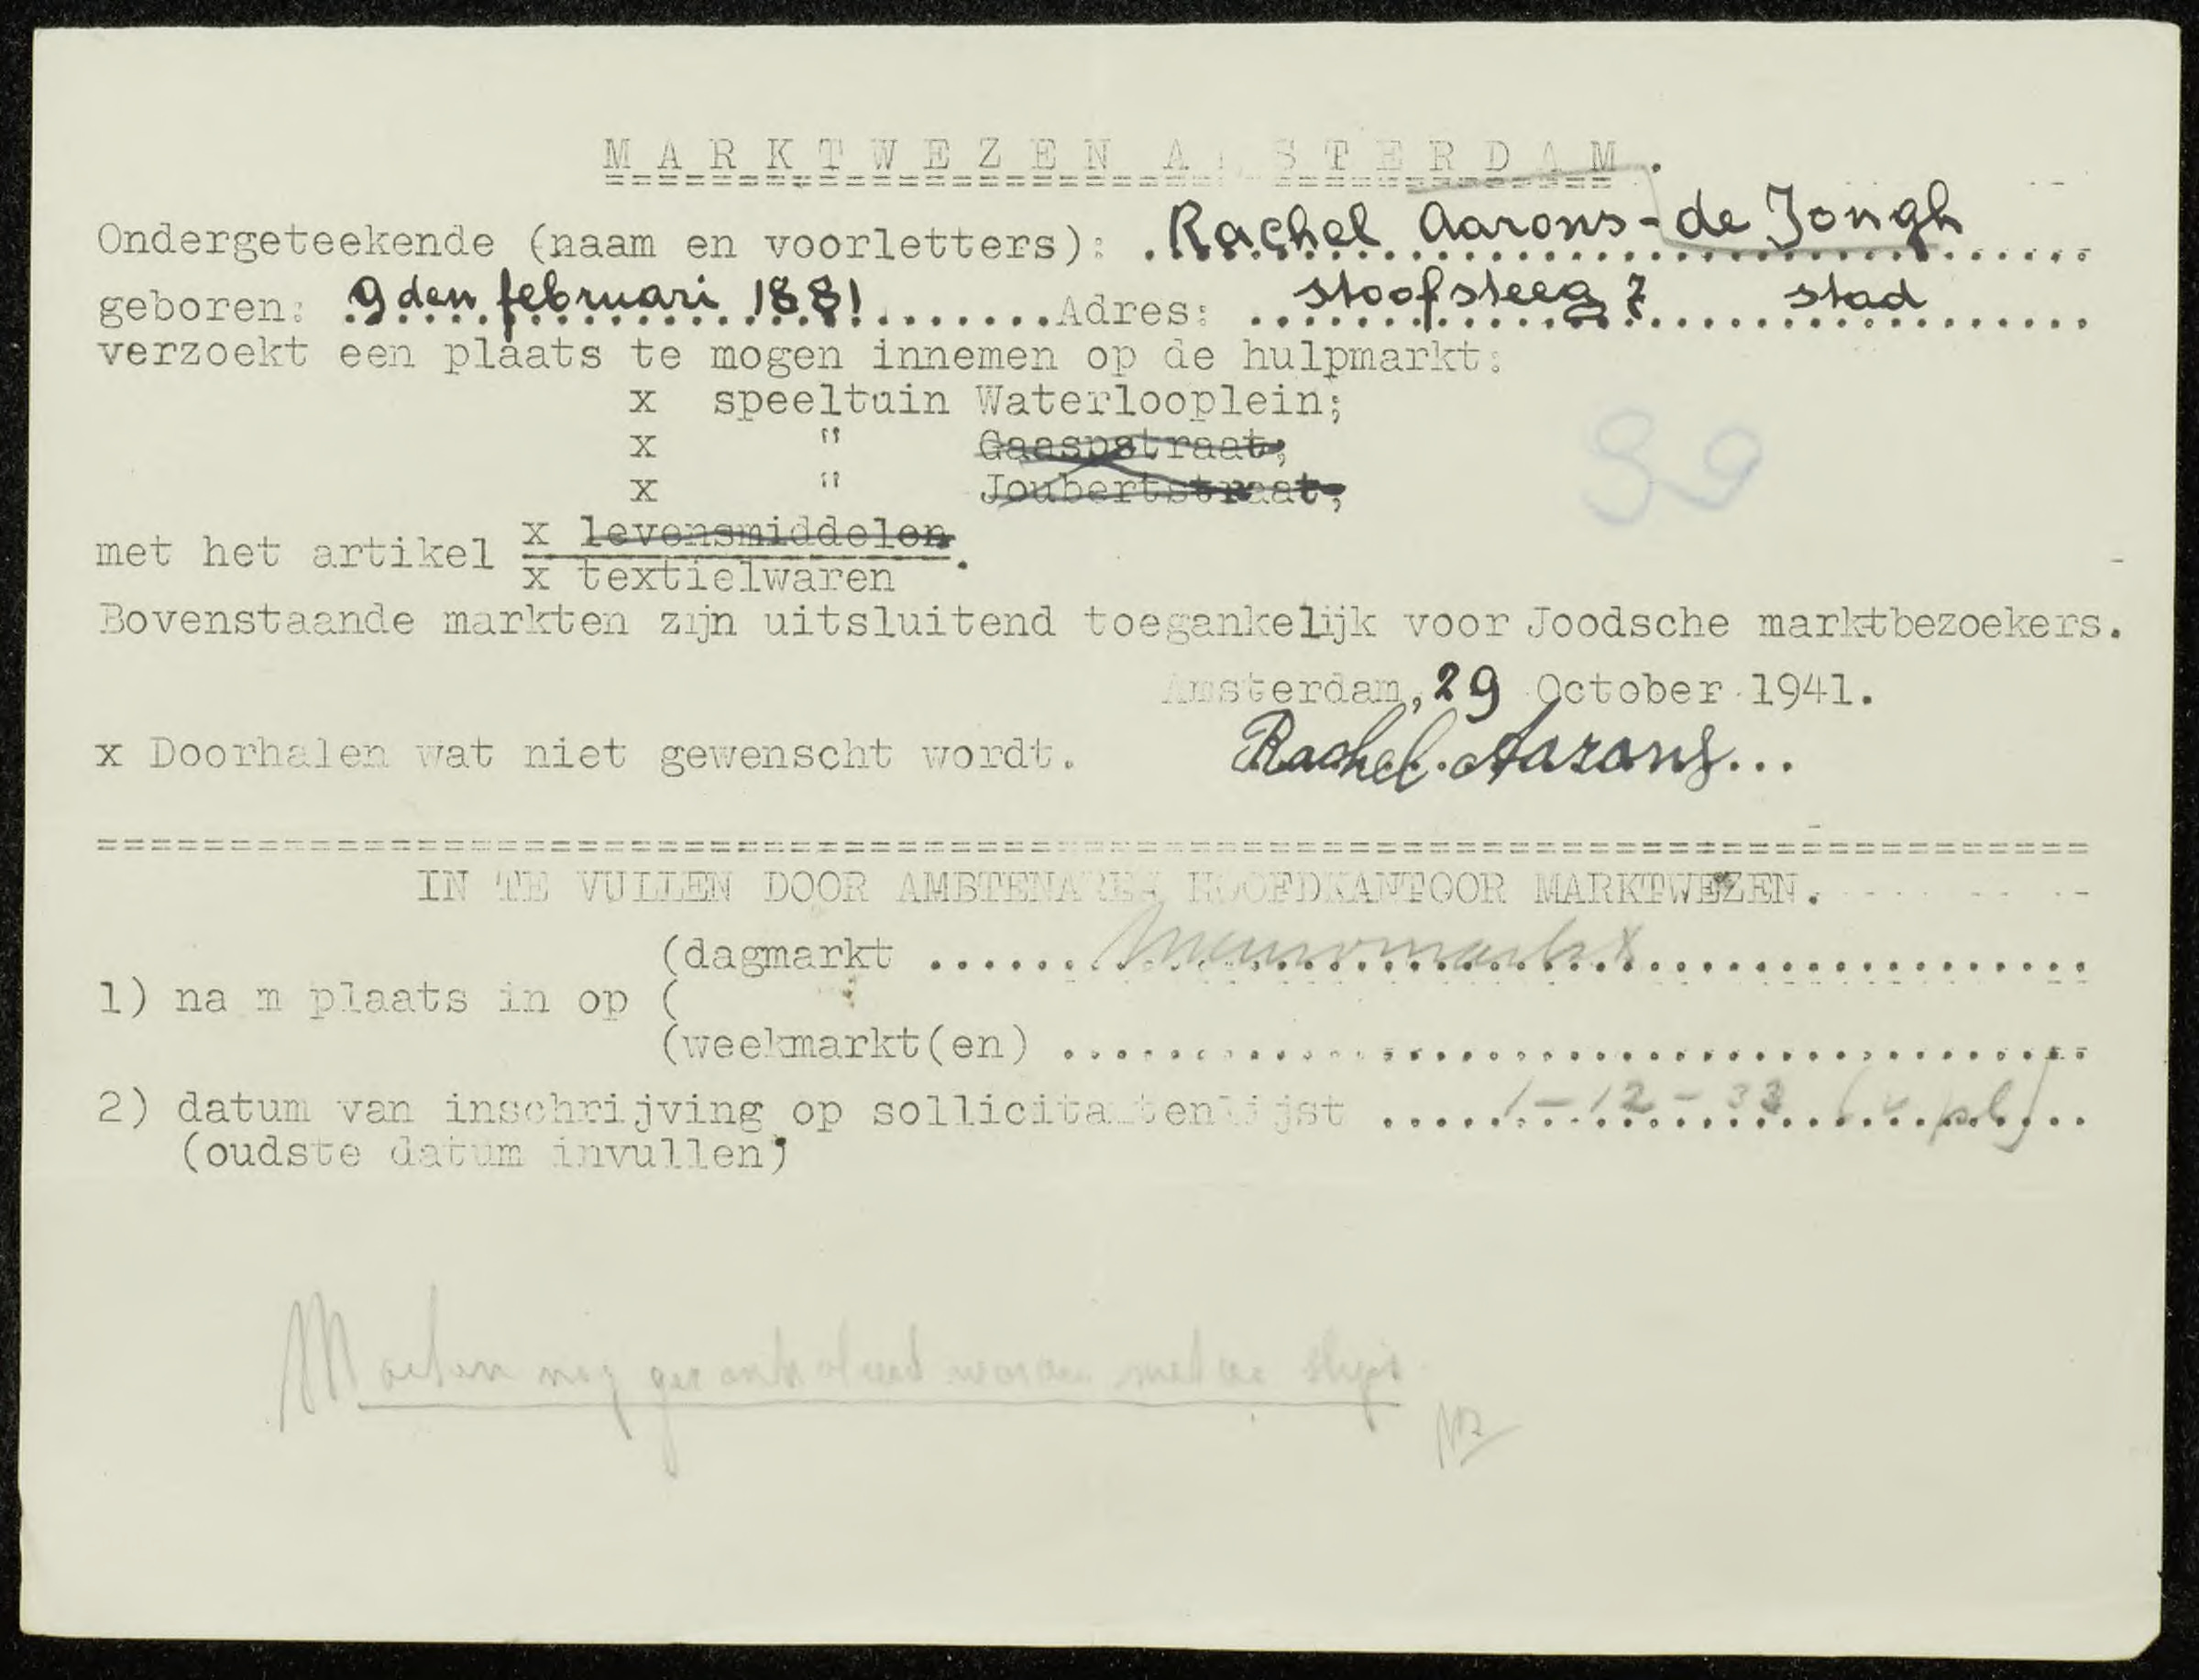 MARKTWEZEN AMSTERDAM.
Ondergeteekende (naam en voorletters): Rachel Aarons-de Jongh
geboren: 9 den februari 1881 Adres: stoofsteeg 7 stad
verzoekt een plaats te mogen innemen op de hulpmarkt:
x speeltuin Waterlooplein;
x " Gaaspstraat;
x " Joubertstraat;
99
met het artikel x levensmiddelen
x textielwaren.
Bovenstaande markten zijn uitsluitend toegankelijk voor Joodsche marktbezoekers.
Amsterdam, 29 October 1941.
x Doorhalen wat niet gewenscht wordt. Rachel Aarons
IN TE VULLEN DOOR AMBTENAREN HOOFDKANTOOR MARKTWEZEN.
(dagmarkt Nieuwmarkt
1) na m plaats in op (
(weekmarkt(en)
2) datum van inschrijving op sollicitantenlijst 1-12-33 (v pl)
(oudste datum invullen)
Moeten nog gecontroleerd worden met de slips